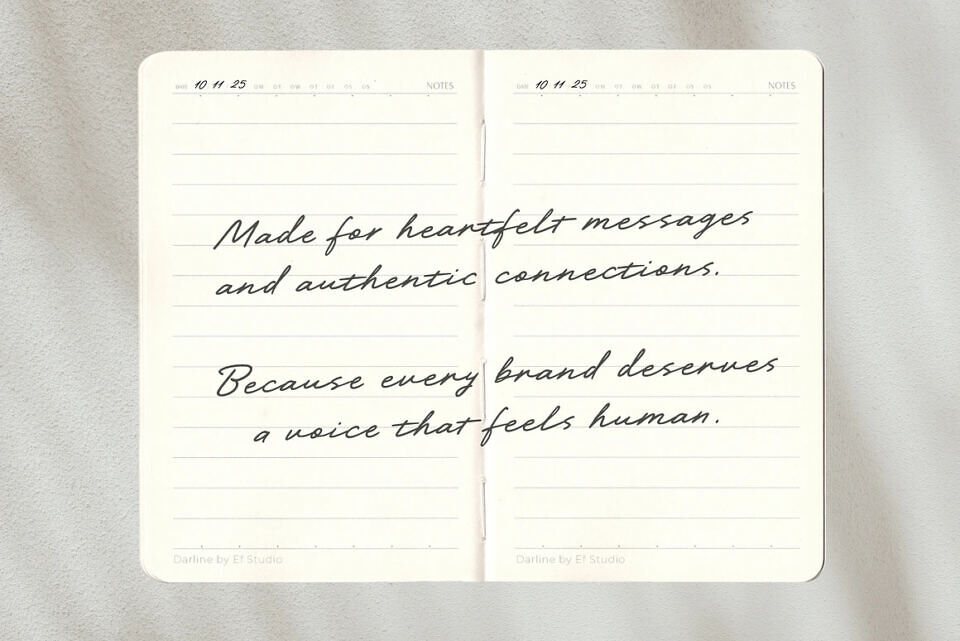 DATE 10 11 25
NOTES
DATE 10 11 25
NOTES
Made for heartfelt messages
and authentic connections.
Because every brand deserves
a voice that feels human.
Darline by Ef Studio
Darline by Ef Studio